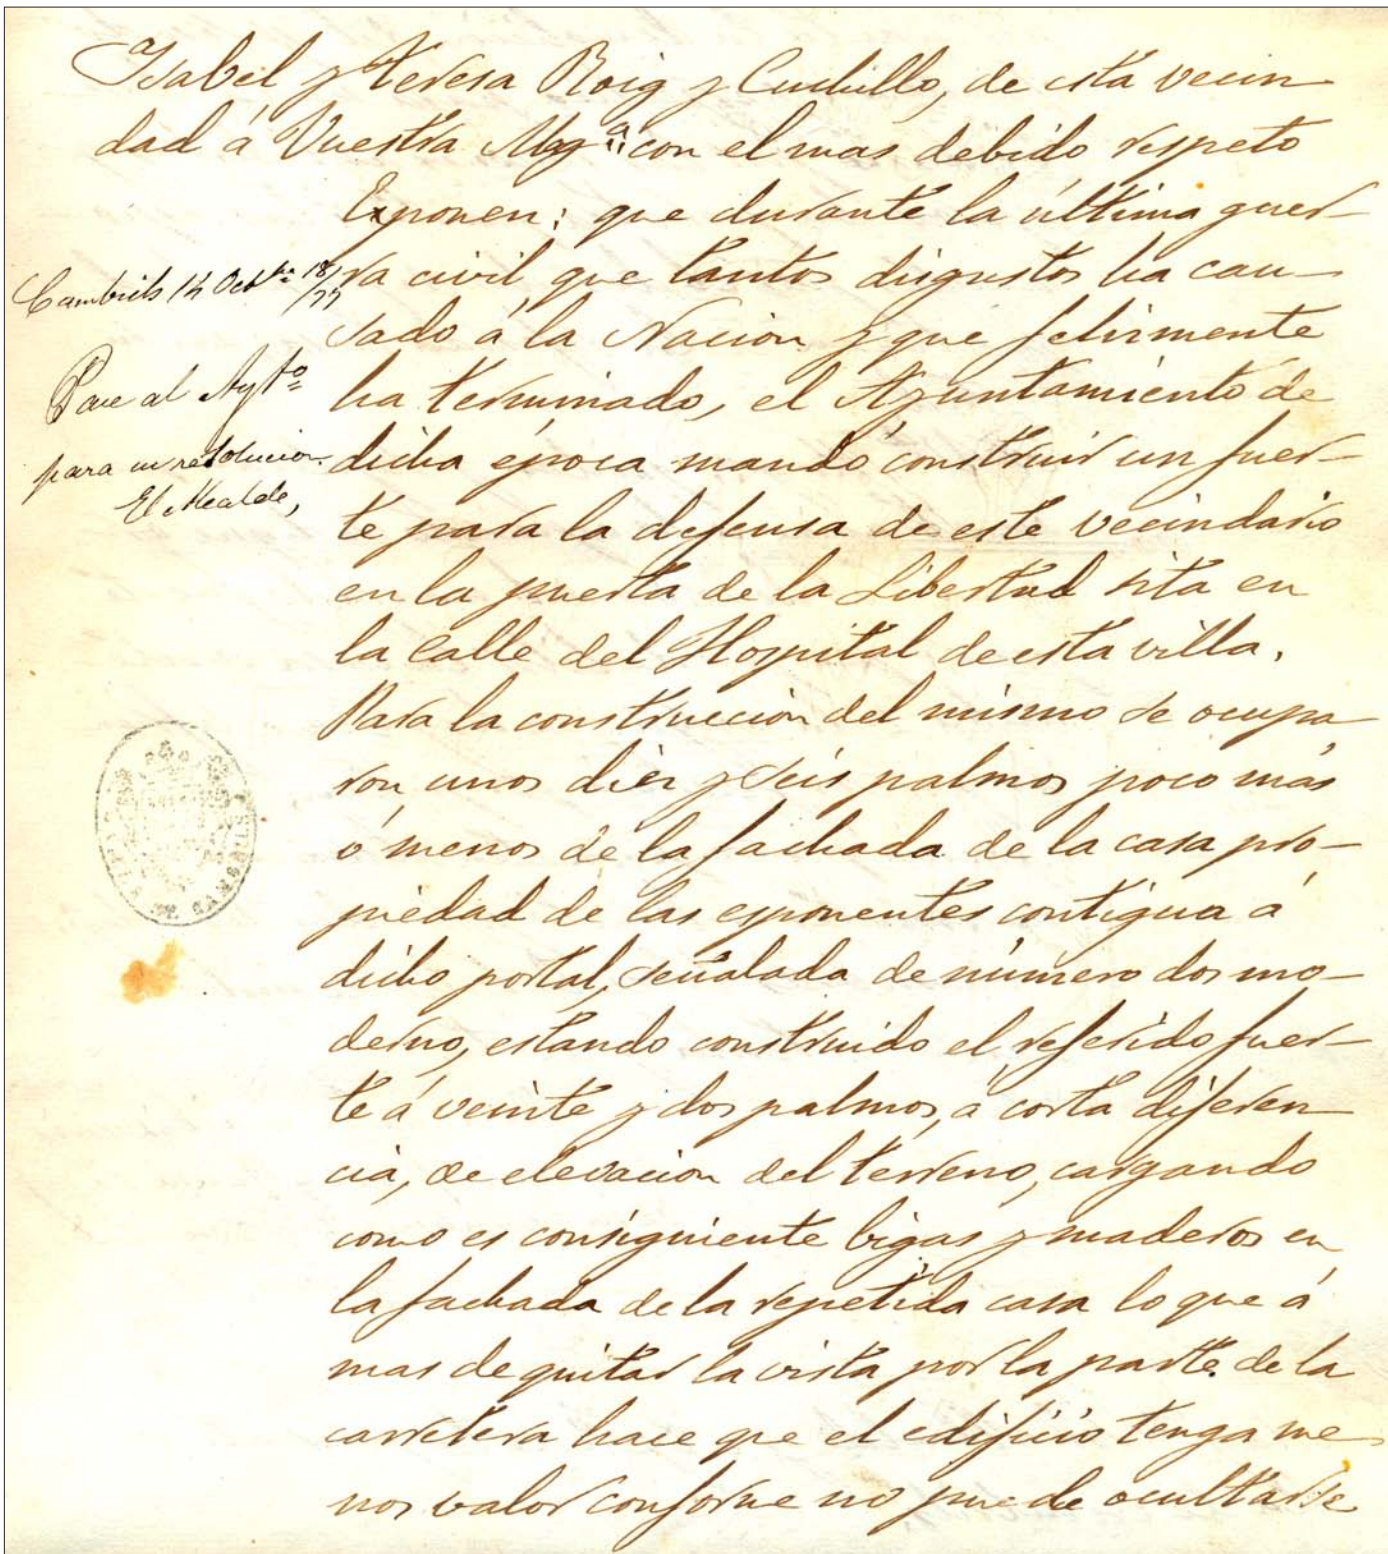 Isabel y Teresa Roig y Cuchillo, de esta vecin
dad á Vuestra Mag.ª con el mas debido respeto
Exponen: que durante la última guer-
ra civil que tantos disgustos ha cau-
sado á la Nacion y que felizmente
ha terminado, el Ayuntamiento de
dicha época mandó construir un fuer-
te para la defensa de este vecindario
en la puerta de la Libertad sita en
la calle del Hospital de esta villa.
Para la construccion del mismo se ocupa
ron unos diez y seis palmos poco más
ó menos de la fachada de la casa pro-
piedad de las esponentes contigua á
dicho portal, señalada de número dos mo-
derno, estando construido el referido fuer-
te á veinte y dos palmos, á corta diferen-
cia, de elevacion del terreno, cargando
como es consiguiente bigas y maderos en
la fachada de la repetida casa lo que á
mas de quitar la vista por la parte de la
carretera hace que el edificio tenga me
nos valor conforme no puede ocultarse
Cambrils 14 Octbre 18/77
Pase al Aytº
para su resolucion.
El Alcalde,
DE CAMBRILS